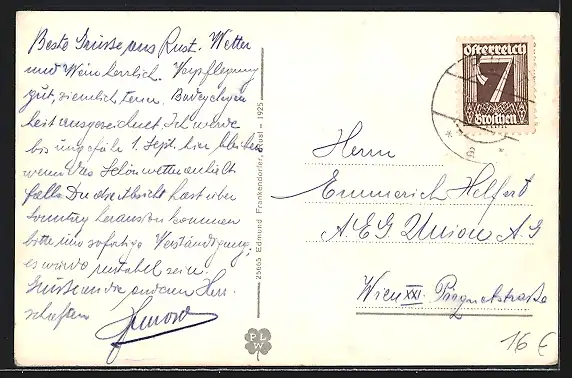 Beste Grüsse aus Rust. Wetter
und Wein herrlich. Verpflegung
gut, ziemlich teuer. Badegelegen
heit ausgezeichnet. Ich werde
bis ungefähr 1. Sept. hier bleiben
wenn das Schönwetter anhält
falls Du die Absicht hast über
Sonntag herauszukommen
bitte um sofortige Verständigung,
es würde rentabel sein.
Grüsse an die anderen Herr
schaften
25665 Edmund Frankendorfer, Rust - 1925
PL
W
Österreich
7
Groschen
Herrn
Emmerich Helfert
A.E.G Union A.G
Wien XXI. Pragnetstraße
16 €